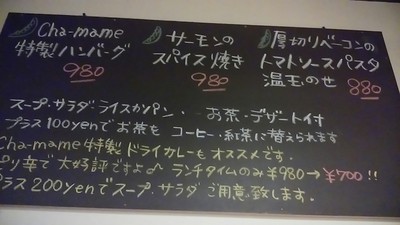 Cha-mame
特製ハンバーグ
980
サーモンの
スパイス焼き
980
厚切りベーコンの
トマトソースパスタ
温玉のせ 880
スープ・サラダ・ライスカパン・ お茶・デザート付
プラス100yenでお茶をコーヒー・紅茶に替えられます
Cha-mame特製ドライカレーもオススメです。
ピリ辛で大好評ですよ♪ ランチタイムのみ¥980→¥700!!
プラス200yenでスープ・サラダご用意致します。